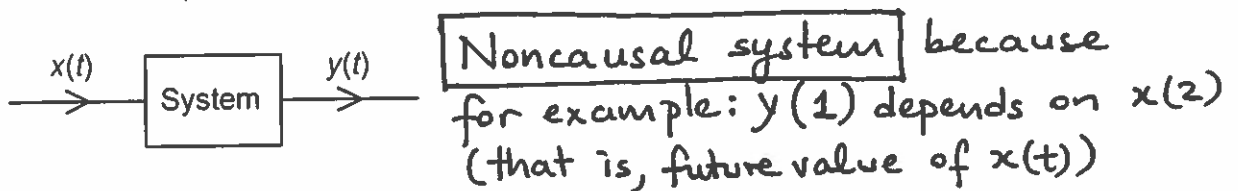 x(t)
System
y(t)
Noncausal system because
for example: y(1) depends on x(2)
(that is, future value of x(t))